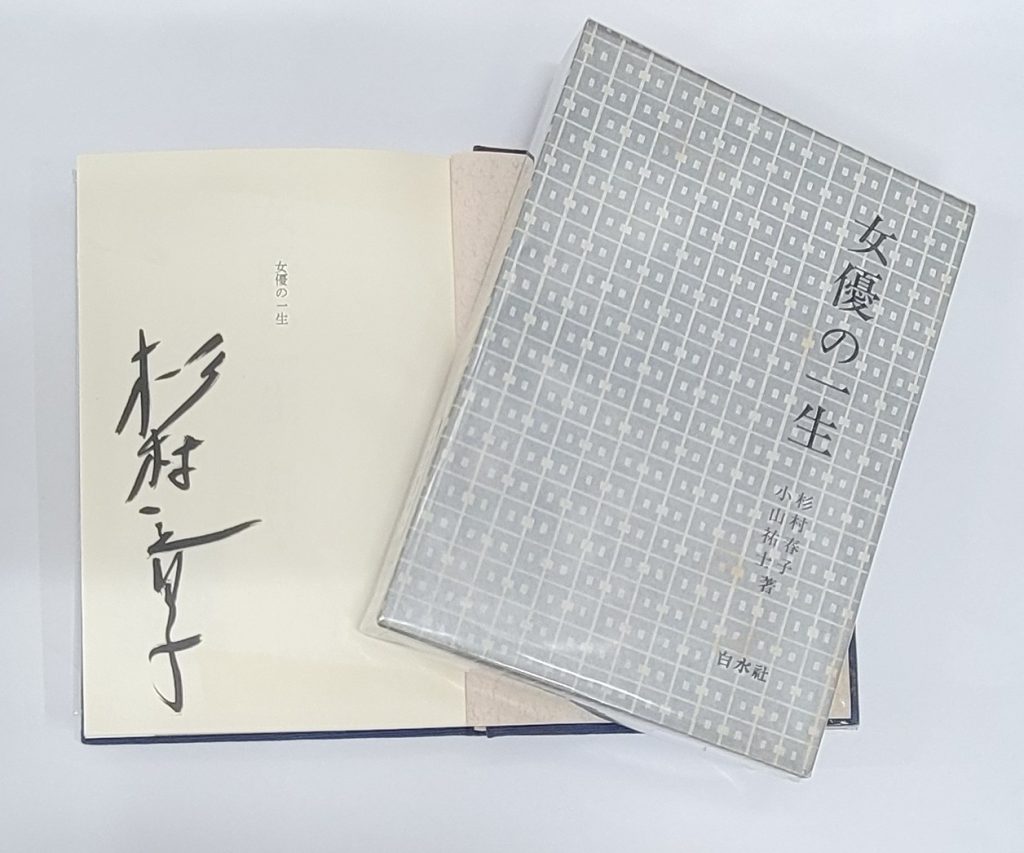 女優の一生
杉村春子
女優の一生
杉村春子
小山祐士著
白水社